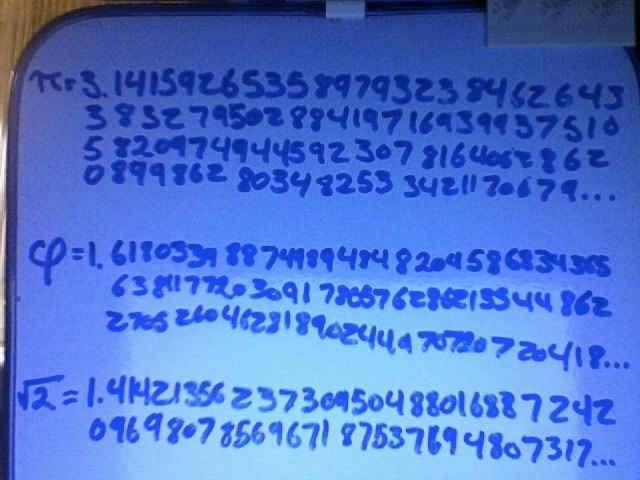 π=3.14159265358979323 8462643
3 8327950288419716939937510
5 82097494459230781640628862
0 899862 80348253 3421170679...
φ=1.618033988749894848204586834365
638117720309178057628621354 4862
27052604628189024497072072 0418...
√2=1.41421356237309504880168872 42
096980785696718753769 4807317...